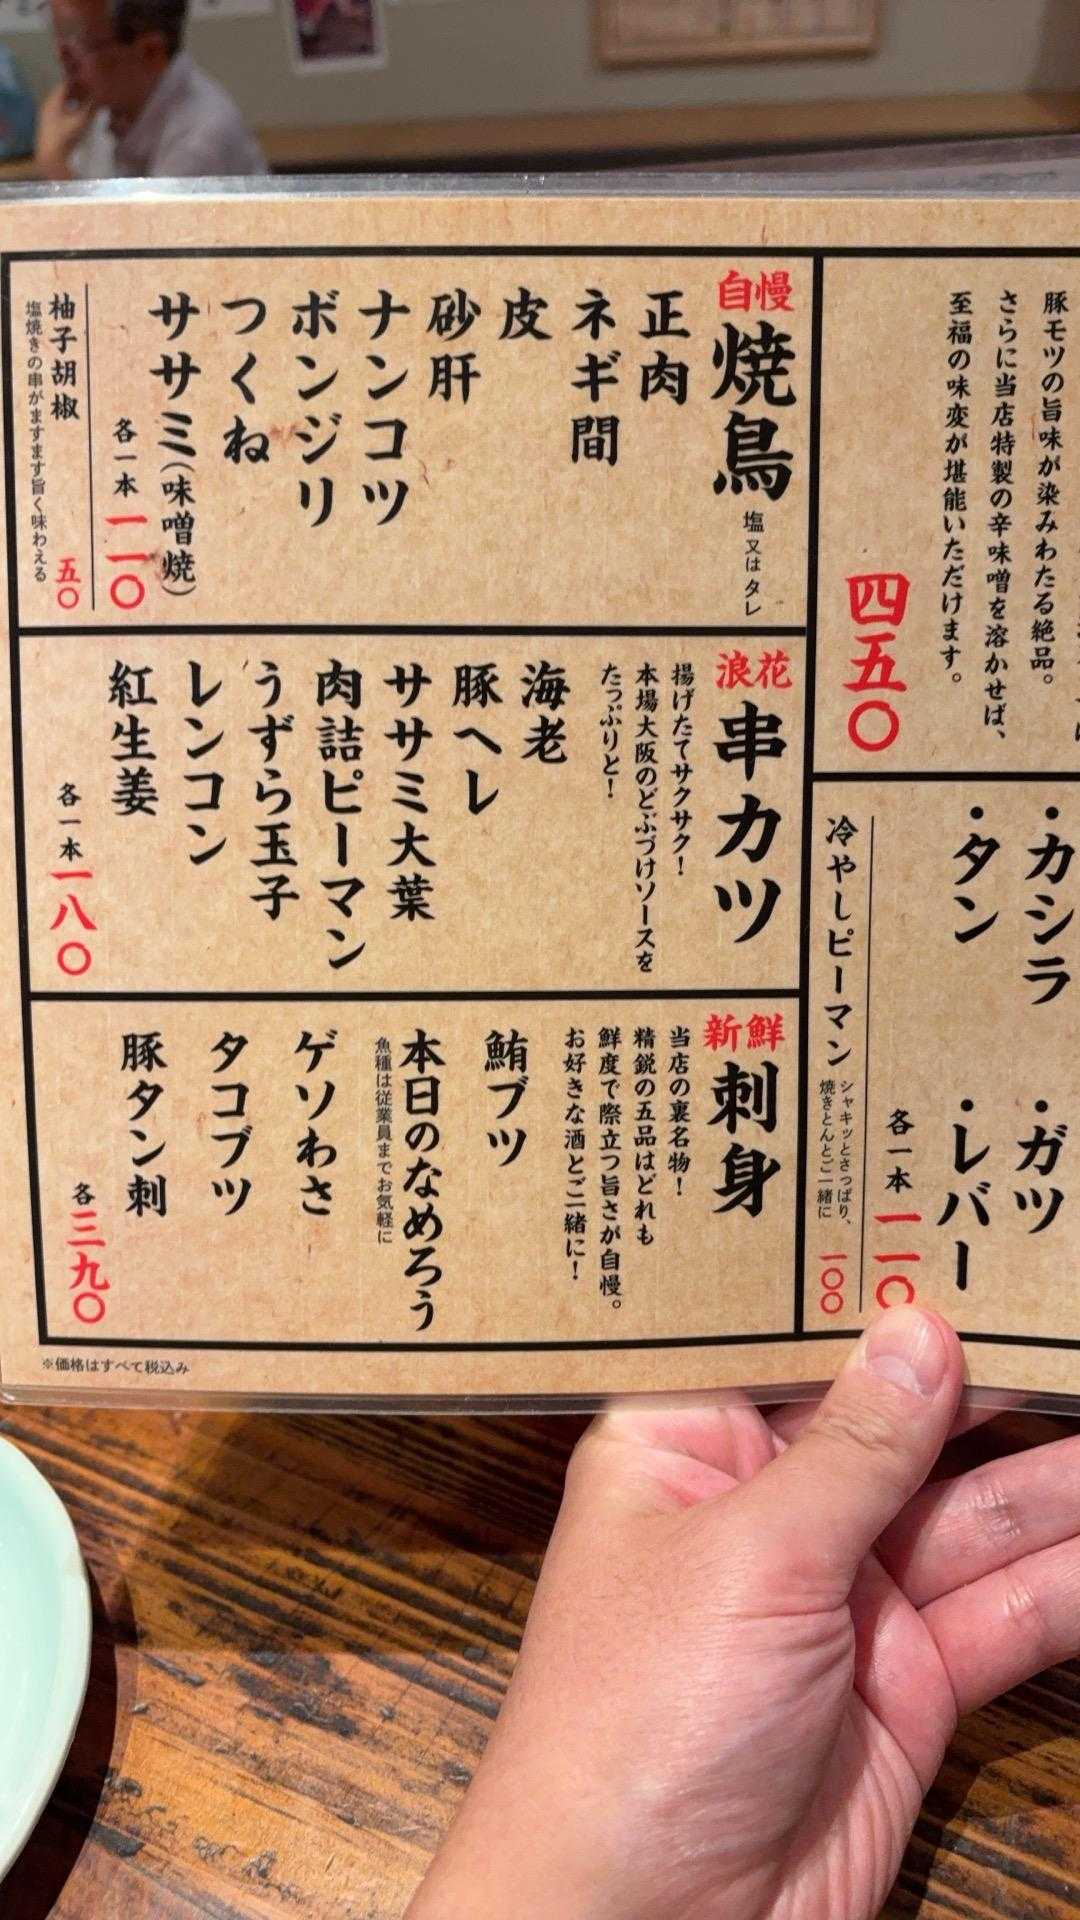 豚モツの旨味が染みわたる絶品。
さらに当店特製の辛味噌を溶かせば、
至福の味変が堪能いただけます。
四五〇
・カシラ
・ガツ
・タン
・レバー
各一本 一一〇
冷やしピーマン
シャキッとさっぱり、
焼きとんとご一緒に
一〇〇
自慢
焼鳥
塩又はタレ
正肉
ネギ間
皮
砂肝
ナンコツ
ボンジリ
つくね
ササミ(味噌焼)
各一本 一一〇
柚子胡椒
塩焼きの串がますます旨く味わえる
五〇
浪花
串カツ
揚げたてサクサク!
本場大阪のどぶづけソースを
たっぷりと!
海老
豚ヘレ
ササミ大葉
肉詰ピーマン
うずら玉子
レンコン
紅生姜
各一本 一八〇
新鮮
刺身
当店の裏名物!
精鋭の五品はどれも
鮮度で際立つ旨さが自慢。
お好きな酒とご一緒に!
鮪ブツ
本日のなめろう
魚種は従業員までお気軽に
ゲソわさ
タコブツ
豚タン刺
各 三九〇
※価格はすべて税込み